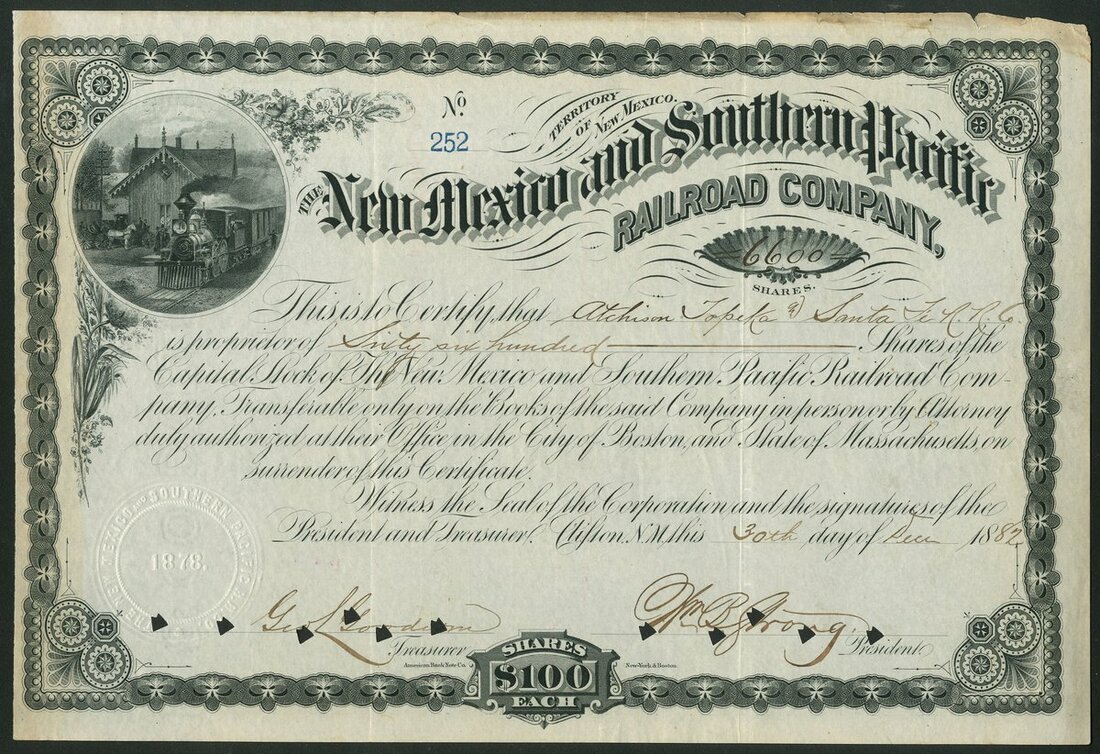 No
252
TERRITORY
OF NEW MEXICO.
THE New Mexico and Southern Pacific
RAILROAD COMPANY,
6600
SHARES.
This is to Certify, that Atchison Topeka & Santa Fe R. R. Co.
is proprietor of Sixty six hundred Shares of the
Capital Stock of The New Mexico and Southern Pacific Railroad Com-
pany, Transferable only on the Books of the said Company in person or by Attorney
duly authorized at their Office in the City of Boston, and State of Massachusetts, on
surrender of this Certificate.
Witness the Seal of the Corporation and the signatures of the
President and Treasurer. Clifton, N.M, this 30th day of Decr 1882
NEW MEXICO AND SOUTHERN PACIFIC R.R. CO.
1878.
Geo L Goodwin
Wm B Strong
Treasurer
President
American Bank Note Co.
New-York & Boston.
SHARES
$100
EACH